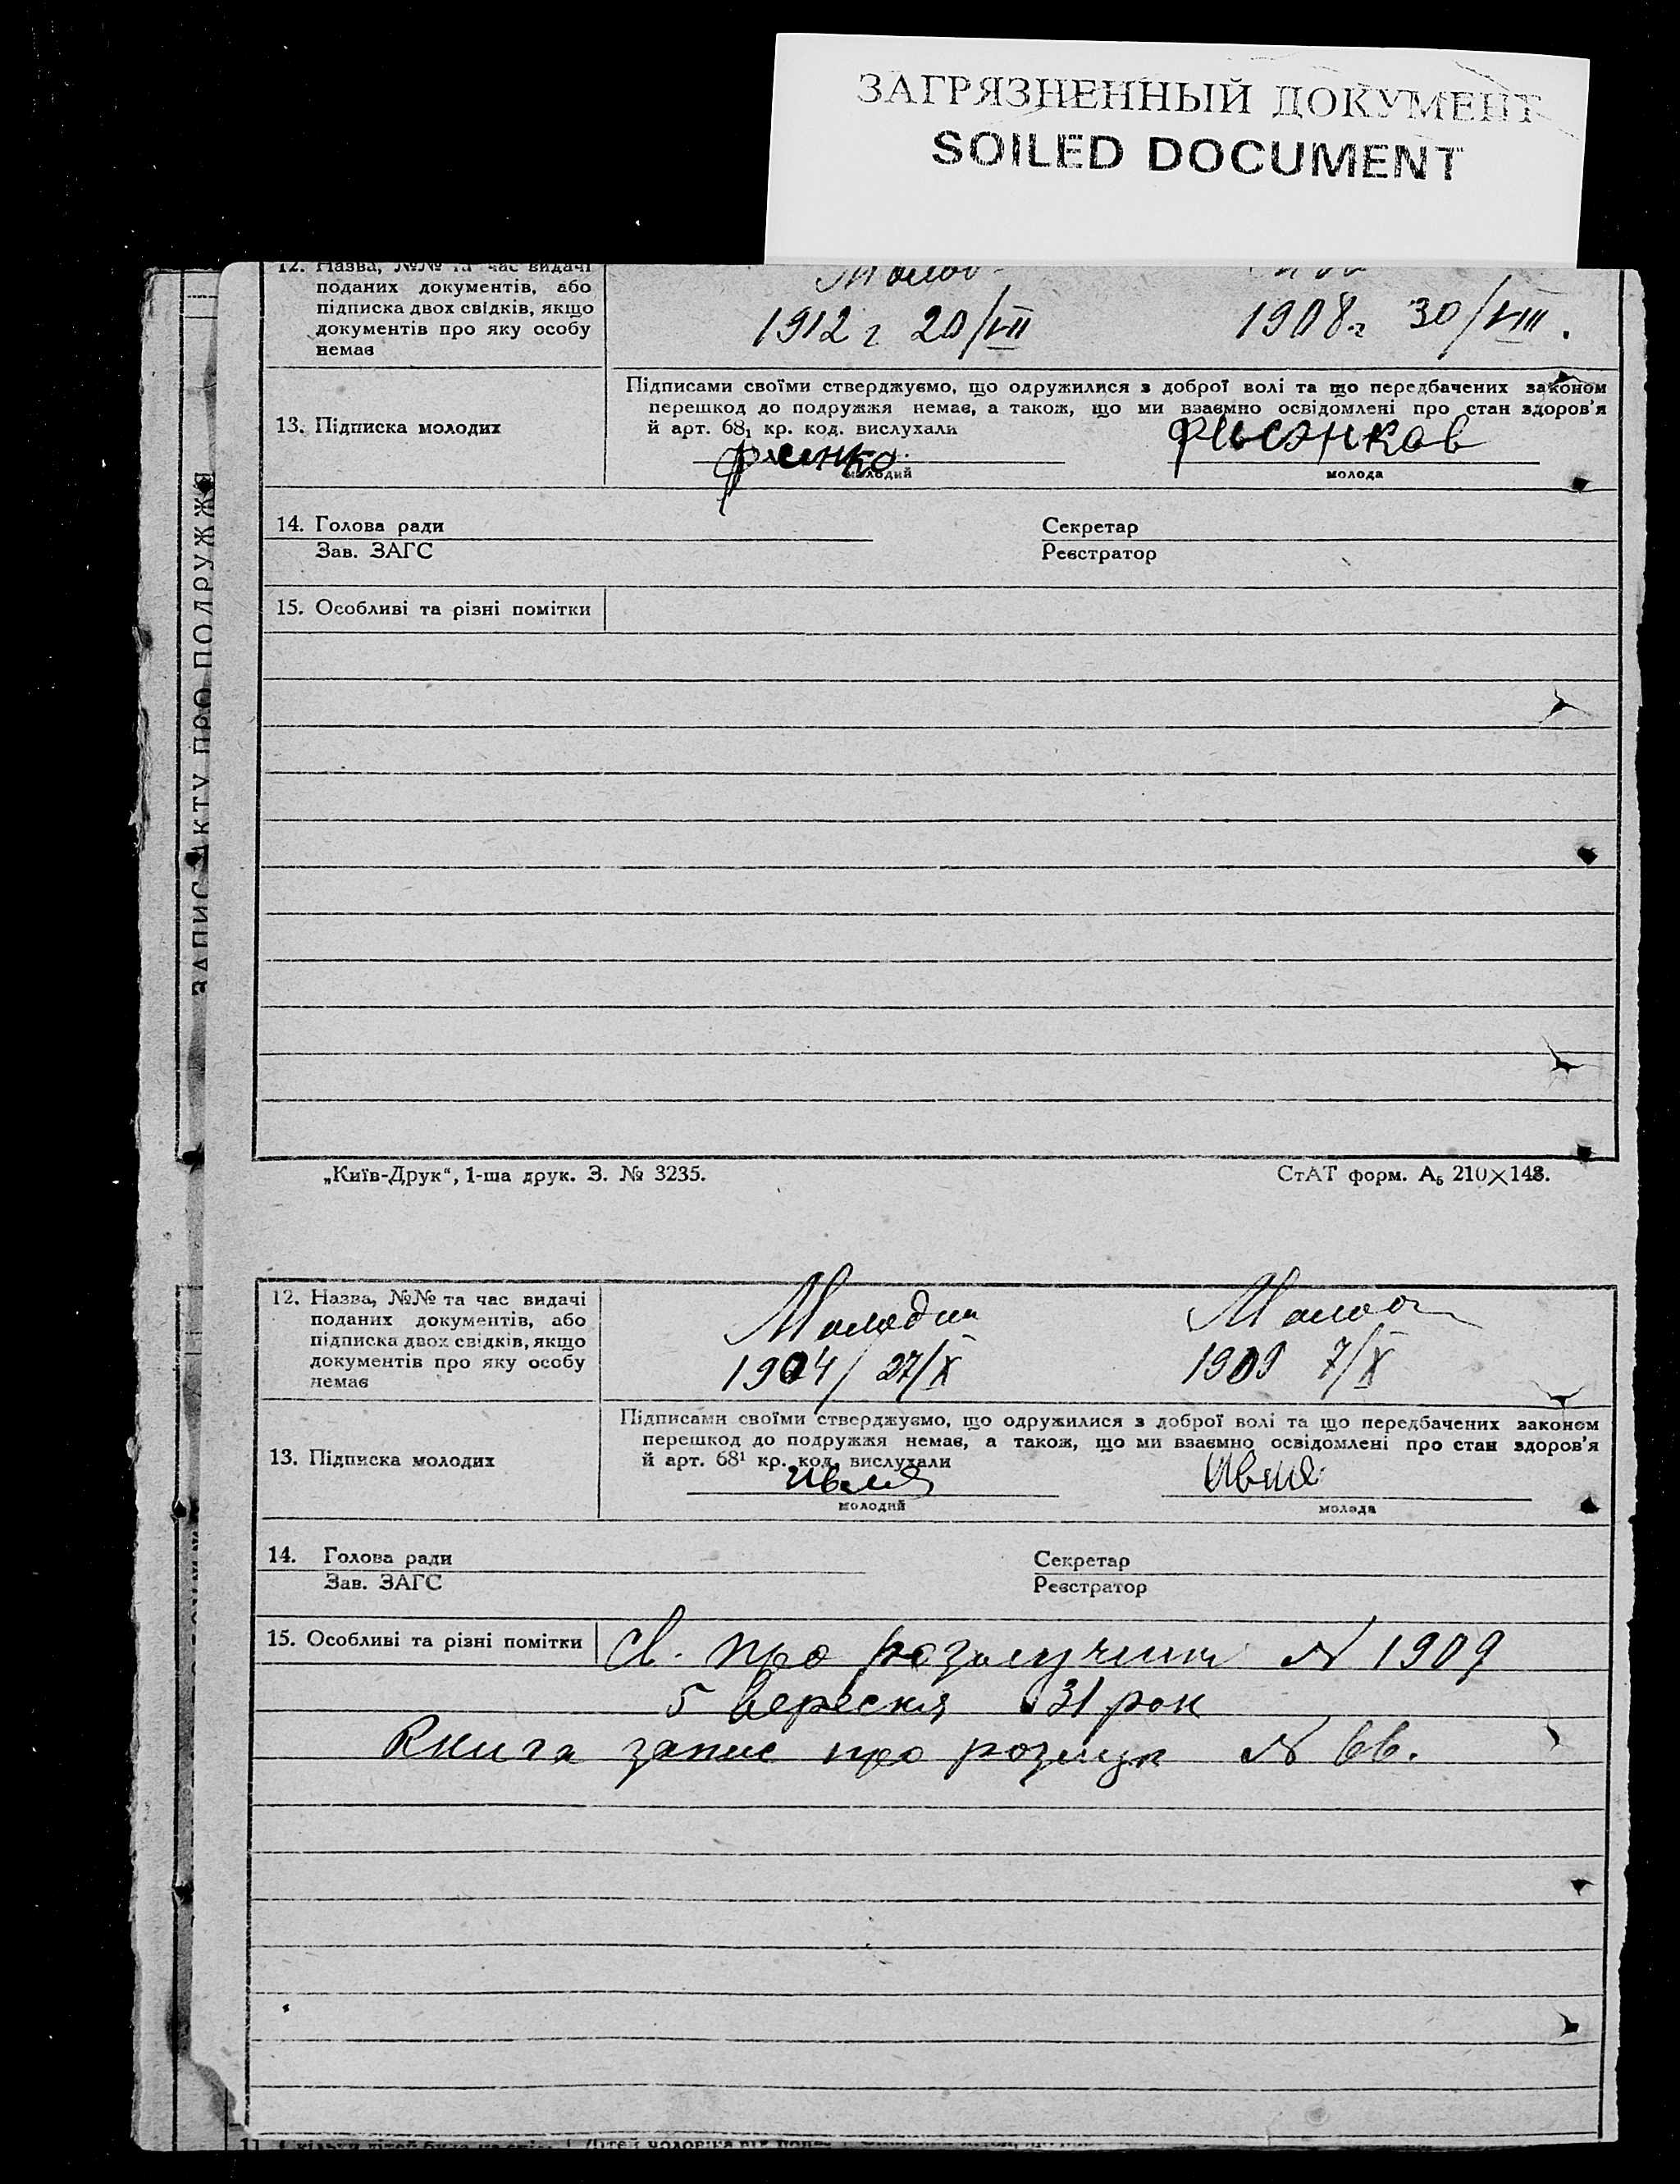 ЗАГРЯЗНЕННЫЙ ДОКУМЕНТ
SOILED DOCUMENT
ЗАПИС АКТУ ПРО ПОДРУЖЖЯ
12. Назва, №№ та час видачі
поданих документів, або
підписка двох свідків, якщо
документів про яку особу
немає
1912 г 20/VII 1908 г 30/VIII.
Підписами своїми стверджуємо, що одружилися з доброї волі та що передбачених законом
перешкод до подружжя немає, а також, що ми взаємно освідомлені про стан здоров'я
13. Підписка молодих
й арт. 68₁ кр. код. вислухали
молодий молода
14. Голова ради Секретар
Зав. ЗАГС Реєстратор
15. Особливі та різні помітки
„Київ-Друк“, 1-ша друк. З. № 3235. СтАТ форм. А₅ 210×148.
12. Назва, №№ та час видачі
поданих документів, або
підписка двох свідків, якщо
документів про яку особу
немає
1904/ 27/X 1909 7/X
Підписами своїми стверджуємо, що одружилися з доброї волі та що передбачених законом
перешкод до подружжя немає, а також, що ми взаємно освідомлені про стан здоров'я
13. Підписка молодих
й арт. 68¹ кр. код. вислухали
молодий молода
14. Голова ради Секретар
Зав. ЗАГС Реєстратор
15. Особливі та різні помітки
Св. про № 1909
5 вересня 31 рок
Книга запис про розлук № 66.